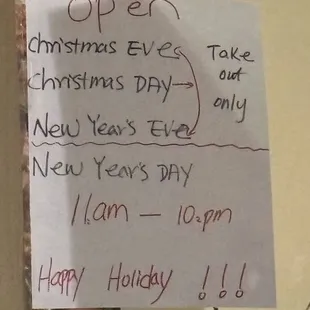 Open
Christmas EVEs
Christmas DAY →
New Year's EVE
Take
out
only
New Year's DAY
11am — 10pm
Happy Holiday !!!